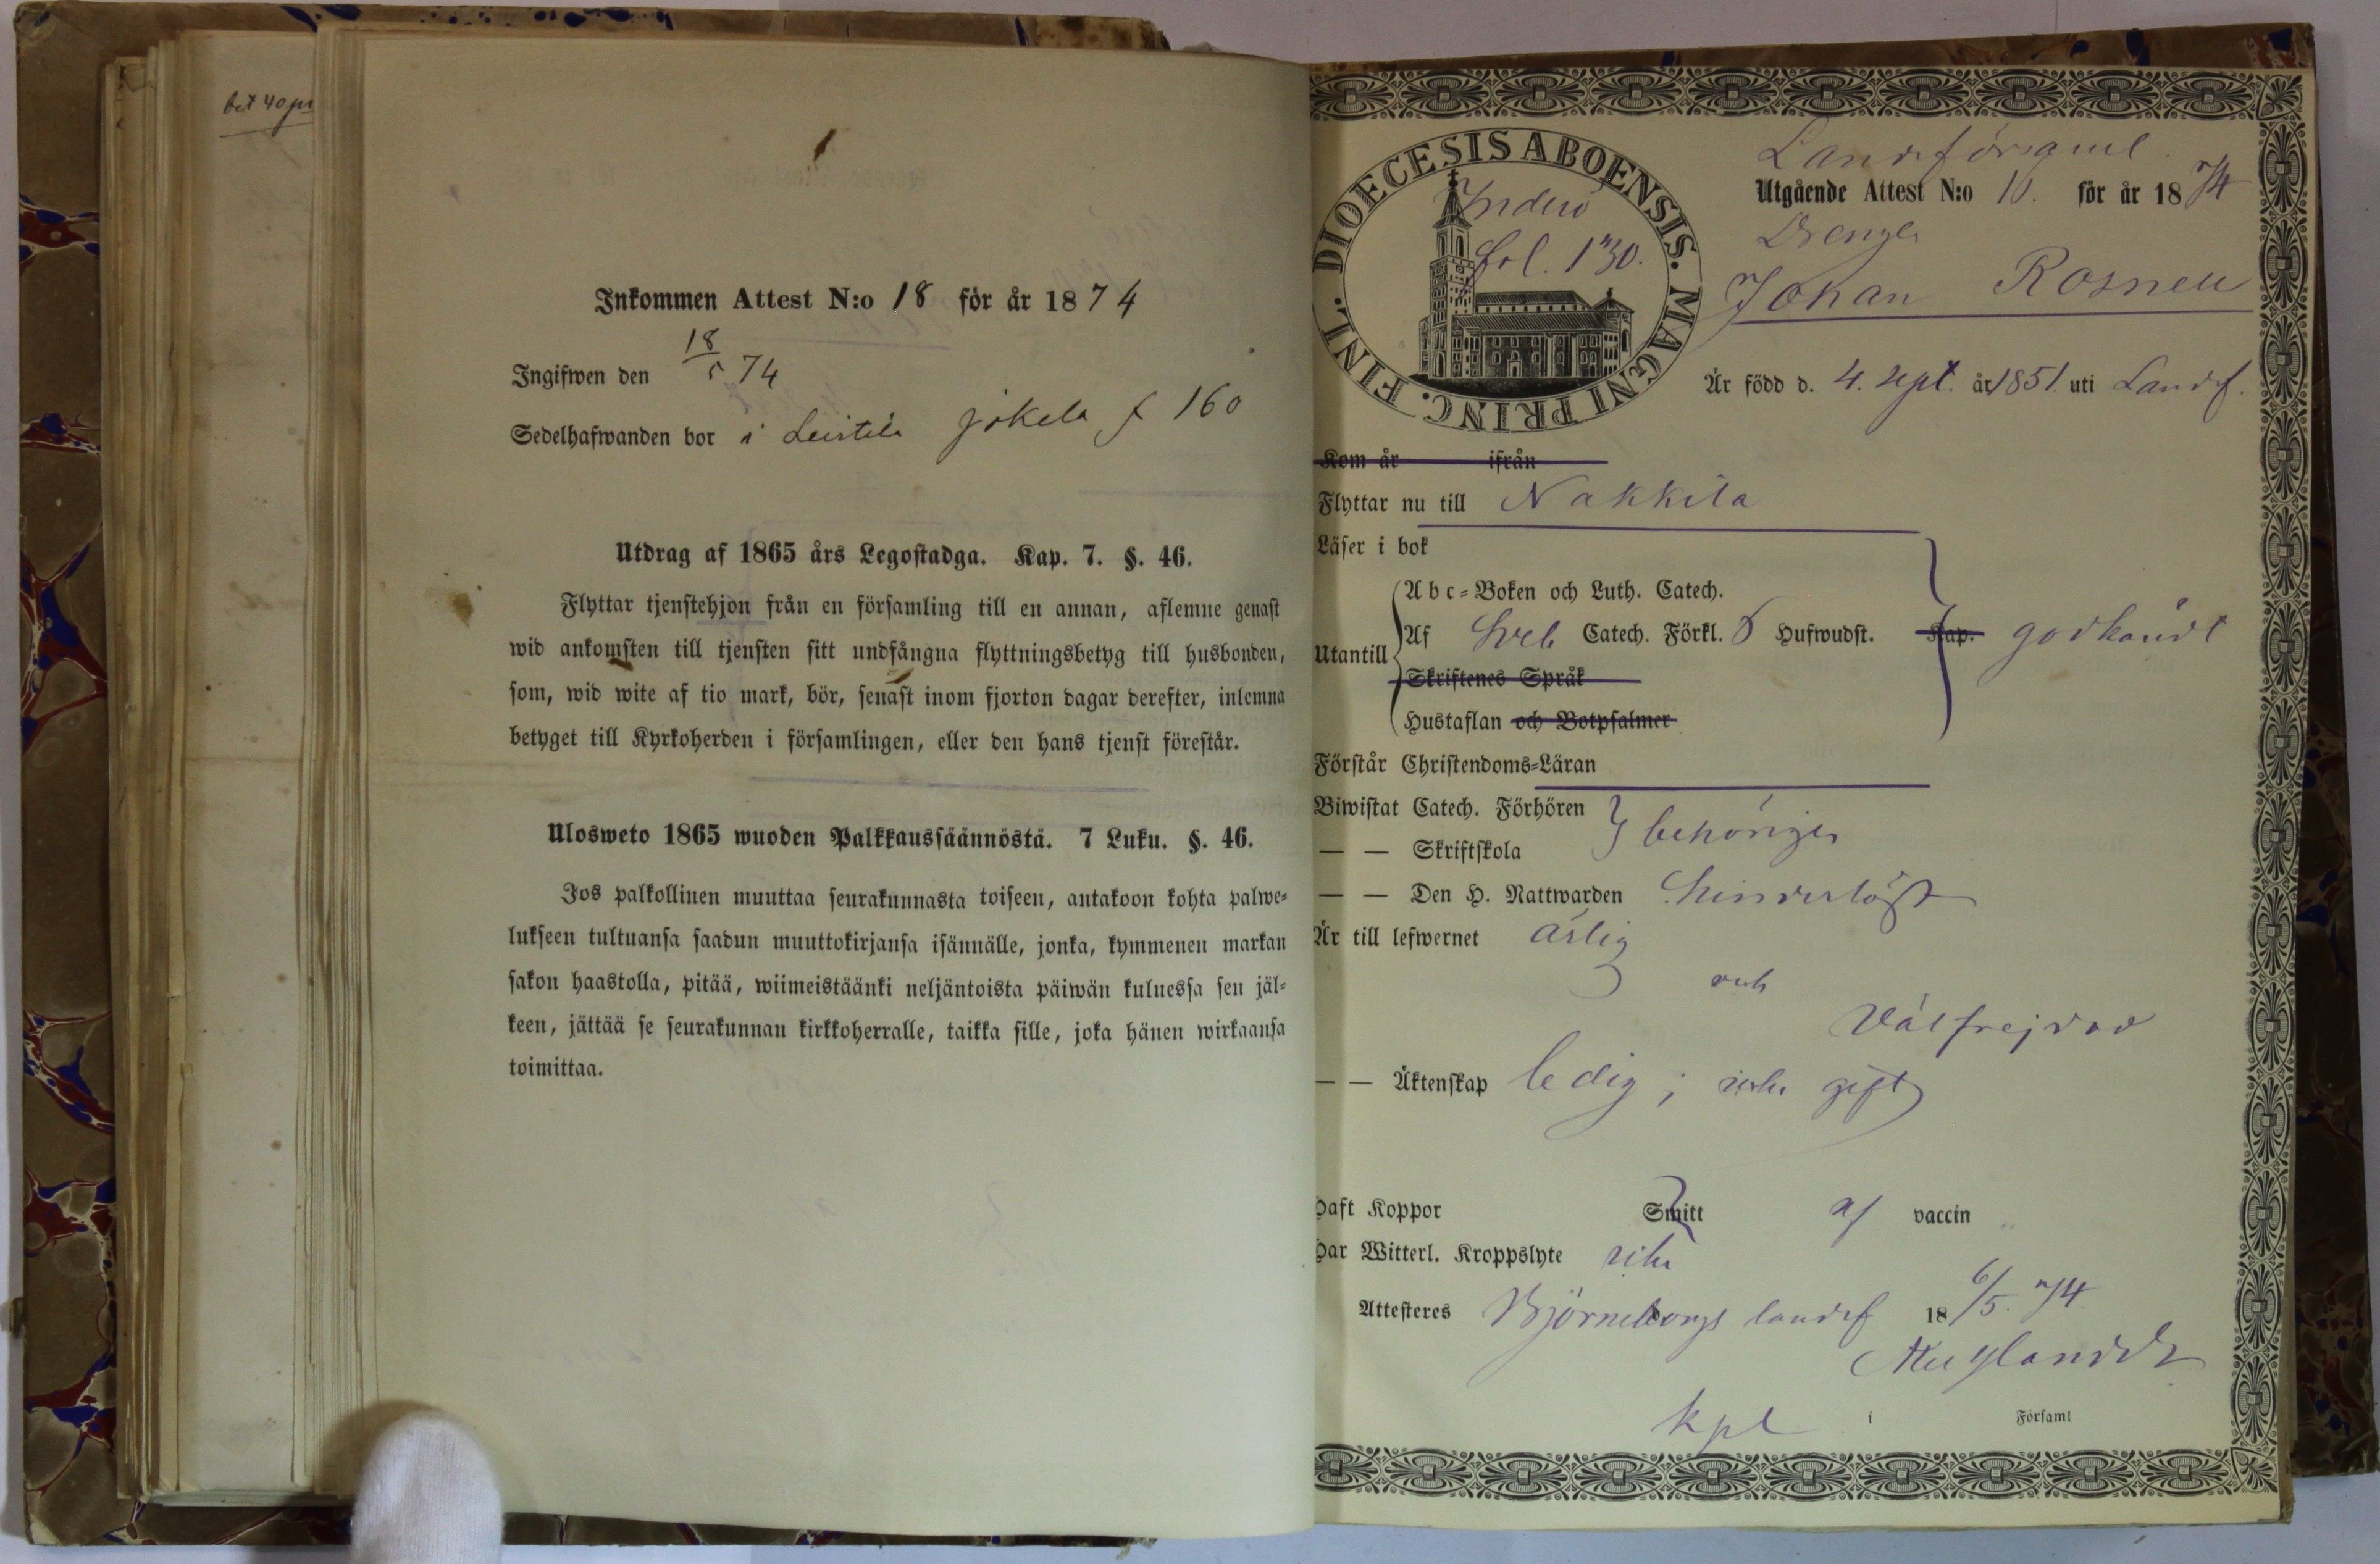 bet 40 pi
Inkommen Attest N:o 18 för år 1874
Ingifwen den 18/5 74
Sedelhafwanden bor i Leistilä Jokela f 160
Utdrag af 1865 års Legostadga. Kap. 7. §. 46.
Flyttar tjenstehjon från en församling till en annan, aflemne genast
wid ankomsten till tjensten sitt undfångna flyttningsbetyg till husbonden,
som, wid wite af tio mark, bör, senast inom fjorton dagar derefter, inlemna
betyget till Kyrkoherden i församlingen, eller den hans tjenst förestår.
Ulosweto 1865 wuoden Palkkaussäännöstä. 7 Luku. §. 46.
Jos palkollinen muuttaa seurakunnasta toiseen, antakoon kohta palwe-
lukseen tultuansa saadun muuttokirjansa isännälle, jonka, kymmenen markan
sakon haastolla, pitää, wiimeistäänki neljäntoista päiwän kuluessa sen jäl-
keen, jättää se seurakunnan kirkkoherralle, taikka sille, joka hänen wirkaansa
toimittaa.
DIOECESIS ABOENSIS. MAGNI PRINC. FINL.
fol. 130.
Landsförsaml
Utgående Attest N:o 10. för år 1874
Drengen
Johan Rosnell
Är född d. 4. sept. år 1851. uti Landsf.
Kom år ifrån
Flyttar nu till Nakkila
Läser i bok
Utantill
A b c-Boken och Luth. Catech.
Af Sveb Catech. Förkl. 5 Hufwudst. Kap. godkändt
Skriftenes Språk
Hustaflan och Botpsalmer
Förstår Christendoms-Läran
Biwistat Catech. Förhören
— — Skriftskola behörigen
— — Den H. Nattwarden hinderlöst
Är till lefwernet ärlig
och
välfrejdad
— — Äktenskap ledig; icke gift
Haft Koppor Smitt af vaccin
Har Witterl. Kroppslyte icke
Attesteres Björneborgs landsf 18 6/5. 74
kpl i Församl